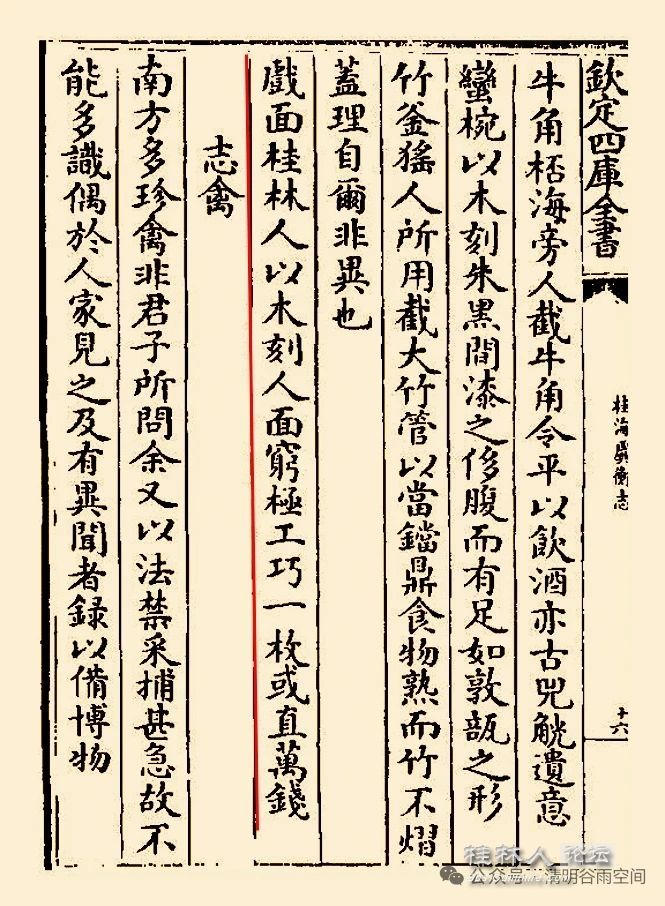 欽定四庫全書
桂海虞衡志
十六
牛角栝海旁人截牛角令平以飲酒亦古兕觥遺意
蠻椀以木刻朱黑間漆之侈腹而有足如敦瓿之形
竹釜猺人所用截大竹筩以當鐺鼎食物熟而竹不熠
蓋理自爾非異也
戲面桂林人以木刻人面窮極工巧一枚或直萬錢
志禽
南方多珍禽非君子所問余又以法禁采捕甚急故不
能多識偶於人家見之及有異聞者錄以備博物
桂林人论坛
公众号·清明谷雨空间